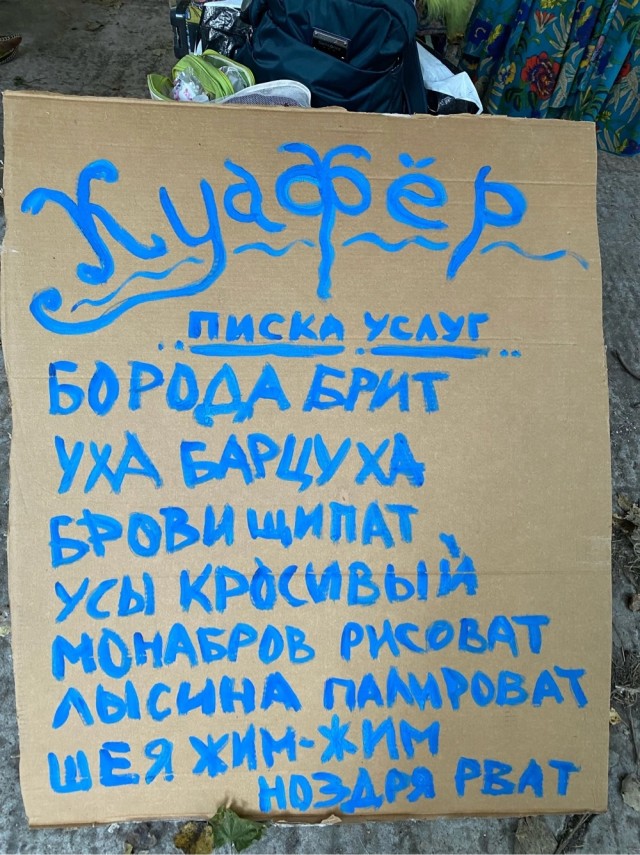 Куафёр
ПИСКА УСЛУГ
БОРОДА БРИТ
УХА БАРЦУХА
БРОВИ ЩИПАТ
УСЫ КРОСИВЫЙ
МОНАБРОВ РИСОВАТ
ЛЫСИНА ПАЛИРОВАТ
ШЕЯ ЖИМ-ЖИМ
НОЗДРЯ РВАТ